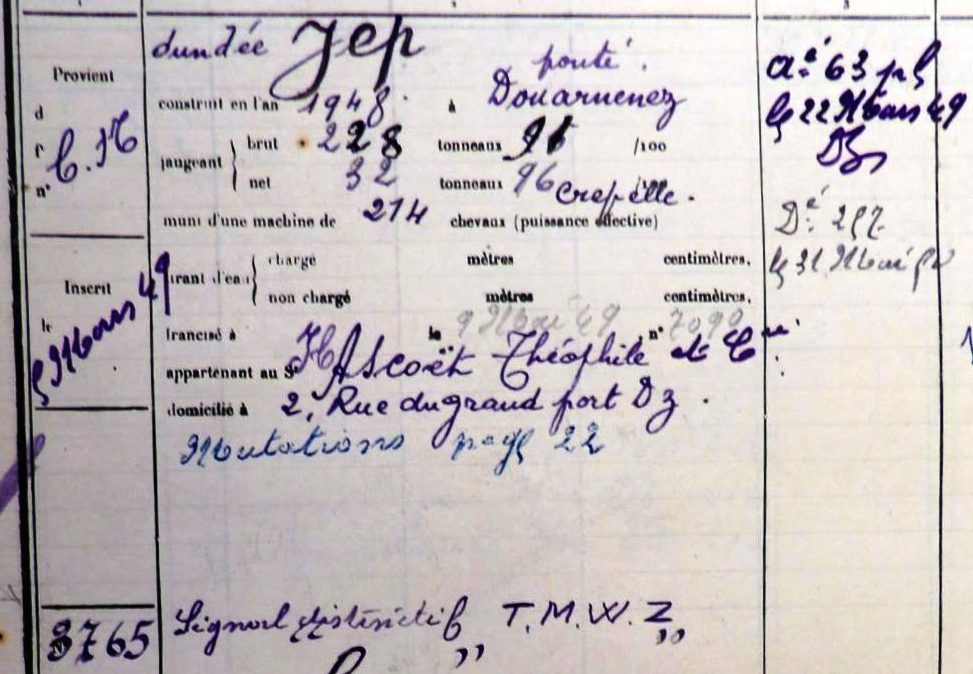 dundée Jep ponté.
construit en l'an 1948 à Douarnenez
jaugeant brut 228 tonneaux 91 /100
net 32 tonneaux 96 Crepelle.
muni d'une machine de 214 chevaux (puissance effective)
tirant d'eau chargé mètres centimètres,
non chargé mètres centimètres,
francisé à le 9 Mai 49 n° 7090
appartenant au Sr HAscoët Théophile et Cie
domicilié à 2, Rue du grand port Dz.
Mutations page 22
Provient
d
r C. N
n°
Inscrit
le
9 Mars 49
3765
Signal distinctif T.M.W.Z
aé 63
le 22 Mars 49
Dz
Dé 217
le 31 Mai